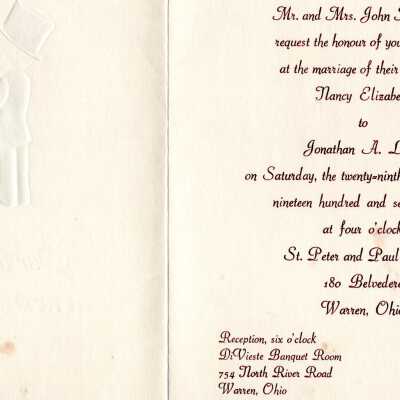 Mr. and Mrs. John
request the honour of
at the marriage of their
Nancy
to
Jonathan A.
on Saturday, the twenty-ninth
nineteen hundred and
at four o'clock
St. Peter and Paul
180
Warren,
Reception, six o'clock
DiVieste Banquet Room
754 North River Road
Warren, Ohio